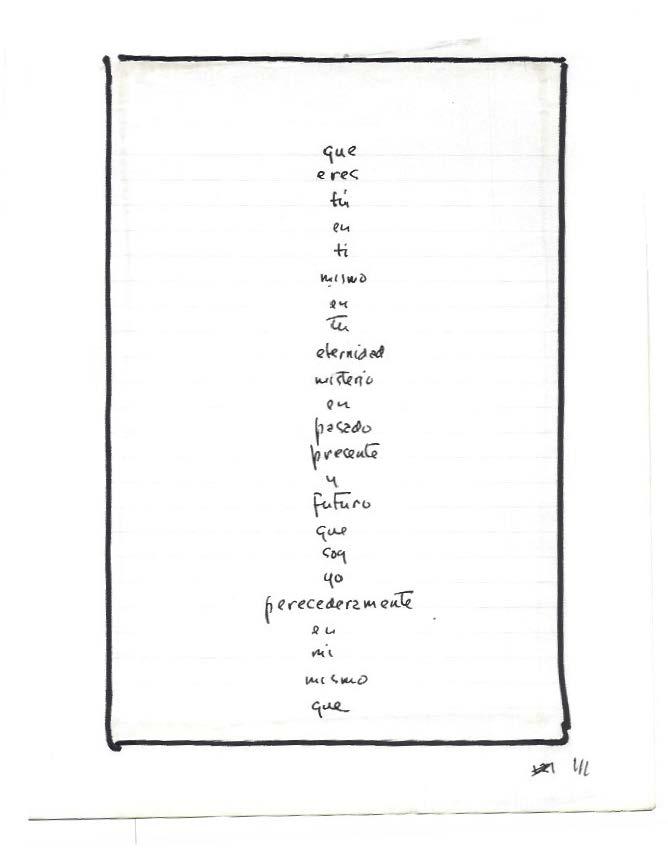 que
eres
tú
en
ti
mismo
en
tu
eternidad
misterio
en
pasado
presente
y
futuro
que
soy
yo
perecederamente
en
mi
mismo
que